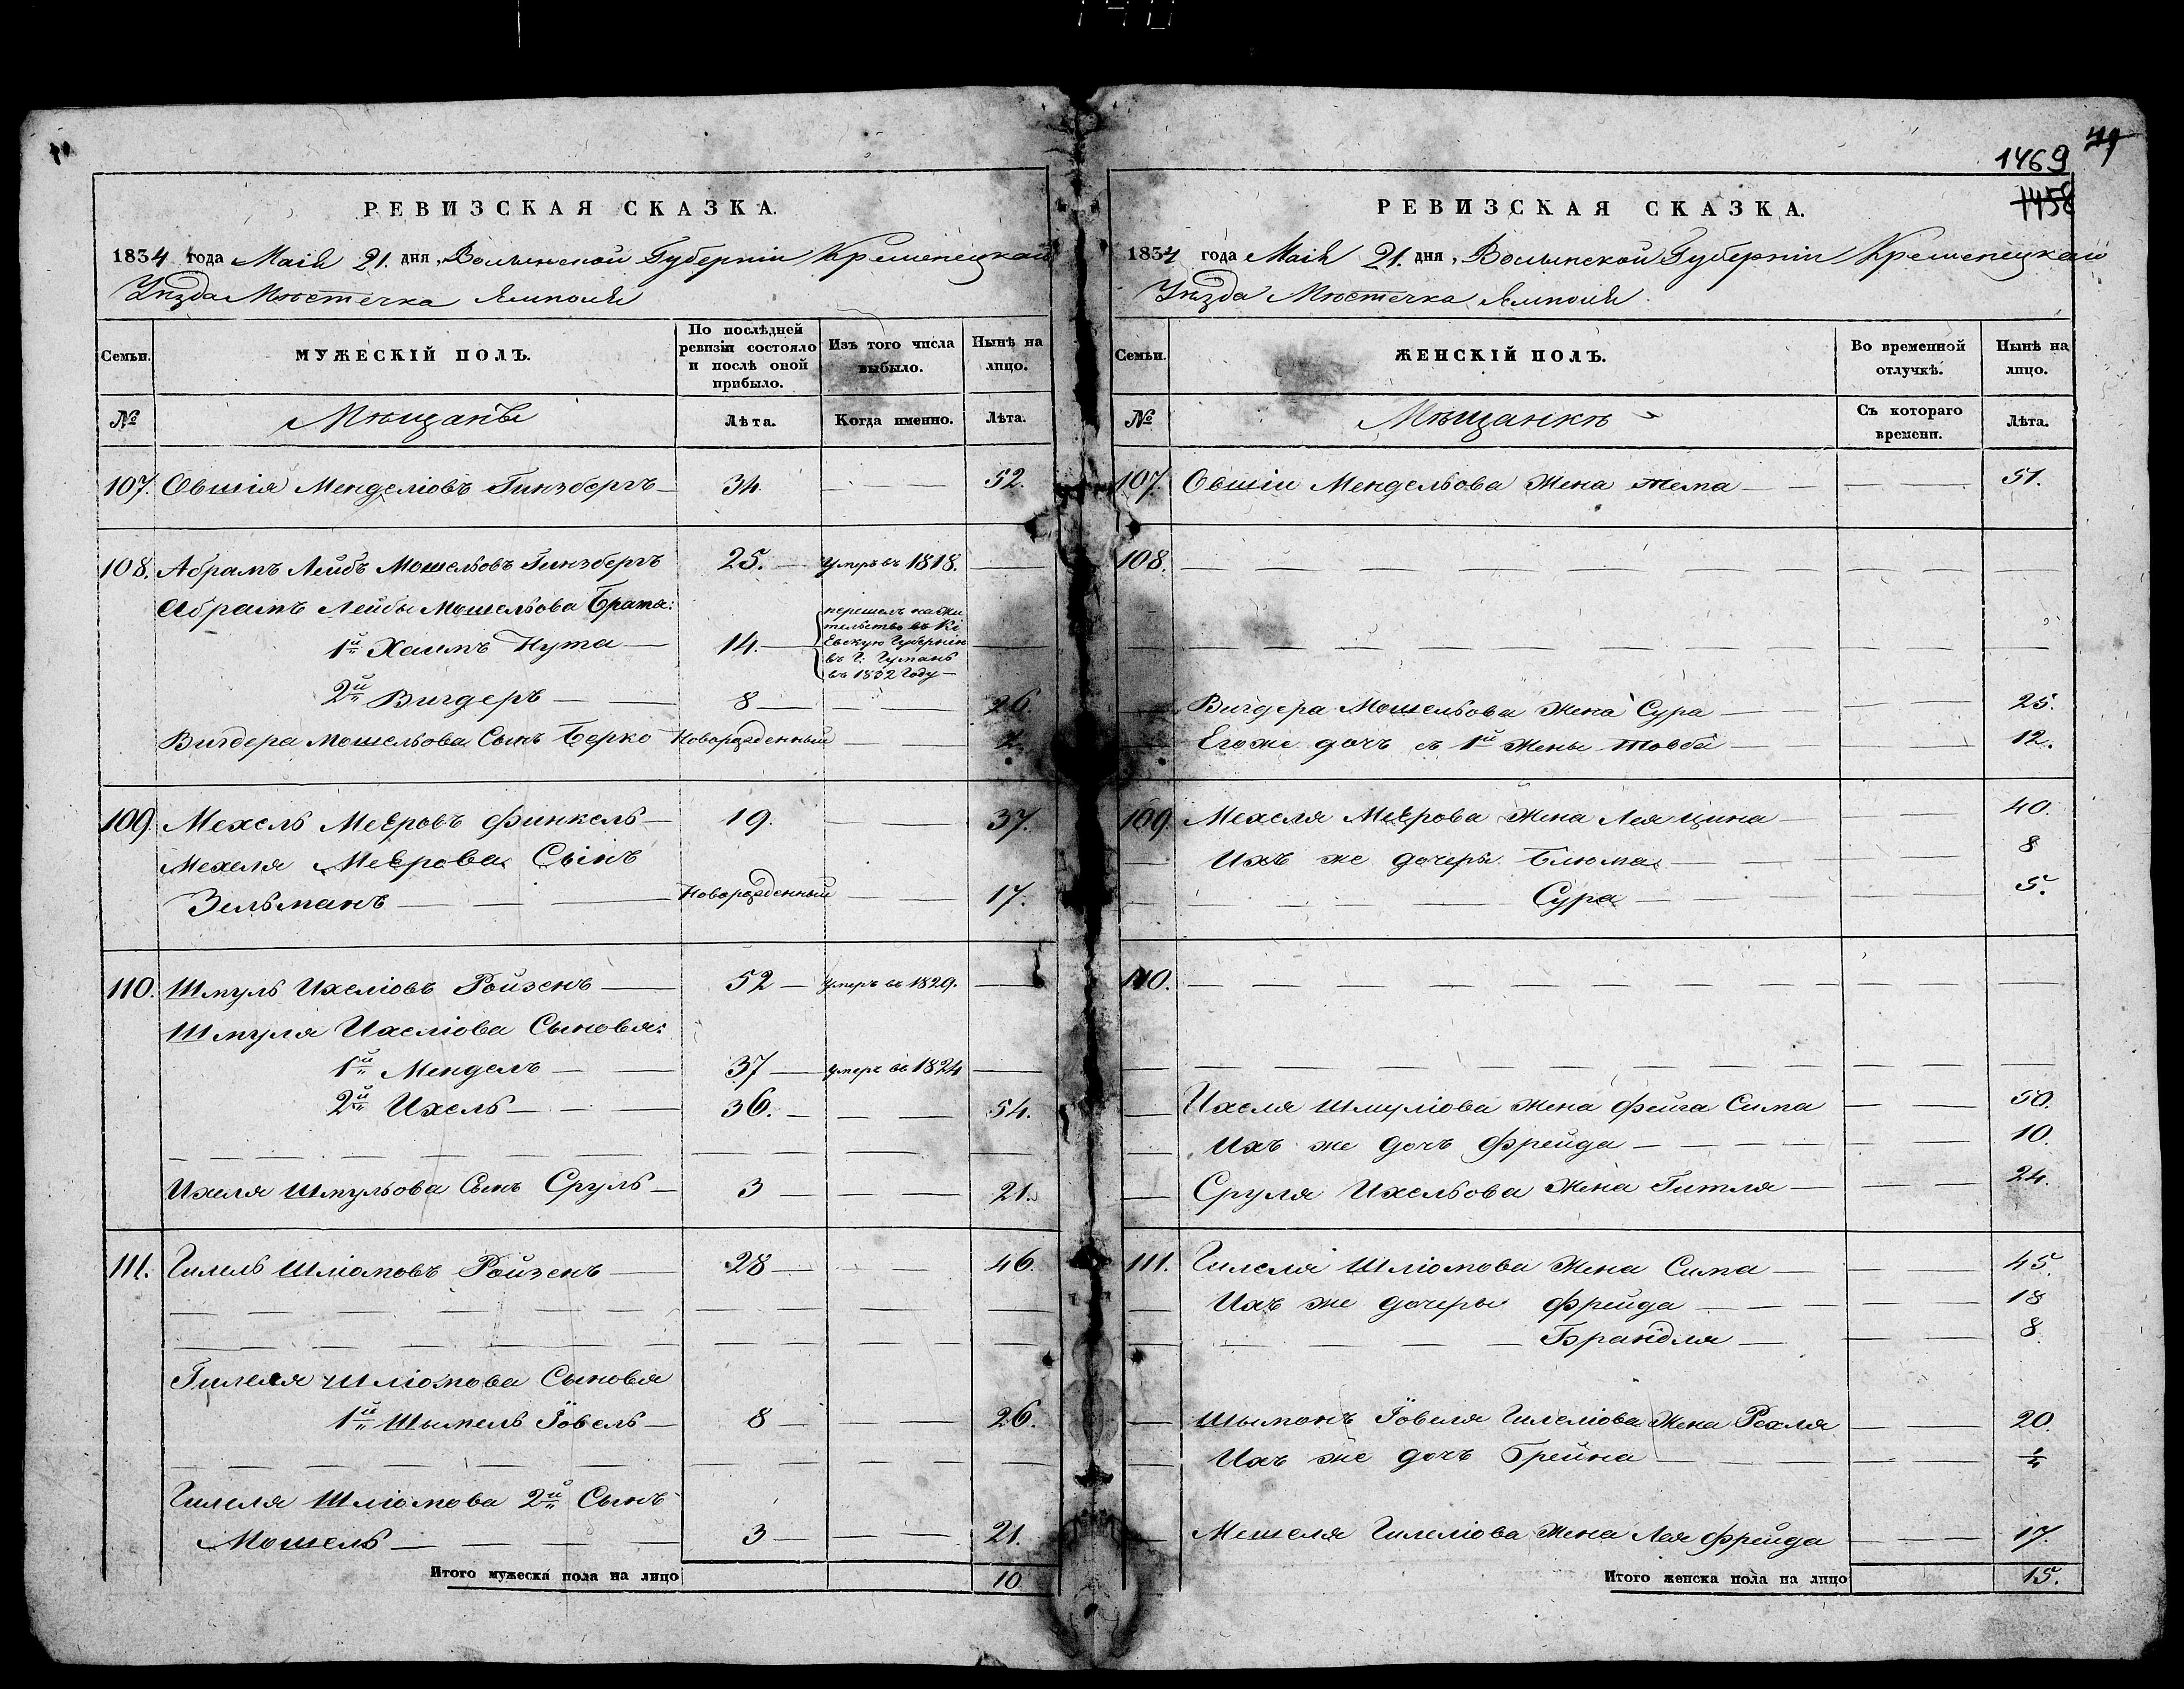 1469
1458
РЕВИЗСКАЯ СКАЗКА.
1834 года Маія 21. дня, Волынской Губерніи Кременецкаго
Уѣзда Мѣстечка Ямполя
Семьи.
МУЖЕСКІЙ ПОЛЪ.
По послѣдней ревизіи состояло и послѣ оной прибыло.
Изъ того числа выбыло.
Нынѣ на лицо.
№
Мѣщанъ
Лѣта.
Когда именно.
Лѣта.
107. Овшія Менделіовъ Гинзбергъ 34. 52.
108. Абрамъ Лейбъ Мошельовъ Гинзбергъ 25. Умеръ въ 1818.
Абрамъ Лейбы Мошельова Брата:
1й Хаимъ Нута 14. перешелъ на жи
тельство въ Кі
Евскую Губернію
въ Г. Гумань
въ 1832 Году
2й Вигдеръ 8 26.
Вигдера Мошельова Сынъ Берко Новорожденный
109. Мехель Меѣровъ Финкель 19. 37.
Мехеля Меѣрова Сынъ
Зельманъ Новорожденный 17.
110. Шмуль Ихеліовъ Ройзенъ 52 Умеръ въ 1829.
Шмуля Ихеліова Сыновя:
1й Менделъ 37 умеръ въ 1824
2й Ихель 36. 54.
Ихеля Шмульова Сынъ Сруль 3 21.
111. Гилель Шліомовъ Ройзенъ 28 46.
Гилеля Шліомова Сыновя
1й Шымель Іовель 8 26.
Гилеля Шліомова 2й Сынъ
Мошель 3 21.
Итого мужеска пола на лицо 10
РЕВИЗСКАЯ СКАЗКА.
1834 года Маія 21. дня, Волынской Губерніи Кременецкаго
Уѣзда Мѣстечка Ямполя
Семьи.
ЖЕНСКІЙ ПОЛЪ.
Во временной отлучкѣ.
Нынѣ на лицо.
№
Мѣщанкѣ
Съ котораго времени.
Лѣта.
107. Овшіи Мендельова Жена Тема 51.
108.
Вигдера Мошельова Жена Сура 25.
Егоже дочъ съ 1й Жены Товба 12.
109. Мехеля Меѣрова Жена Лея Цина 40.
Ихъ же дочеры Блюма 8
Сура 5.
110.
Ихеля Шмуліова Жена Фейга Сима 50.
Ихъ же дочъ Фрейда 10.
Сруля Ихельова Жена Гитля 24.
111. Гилеля Шліомова Жена Сима 45.
Ихъ же дочеры Фрейда 18
Брандля 8.
Шымонъ Іовеля Гилеліова Жена Рехля 20.
Ихъ же дочъ Грейна
Мешеля Гилеліова Жена Лея Фрейда 17.
Итого женска пола на лицо 15.